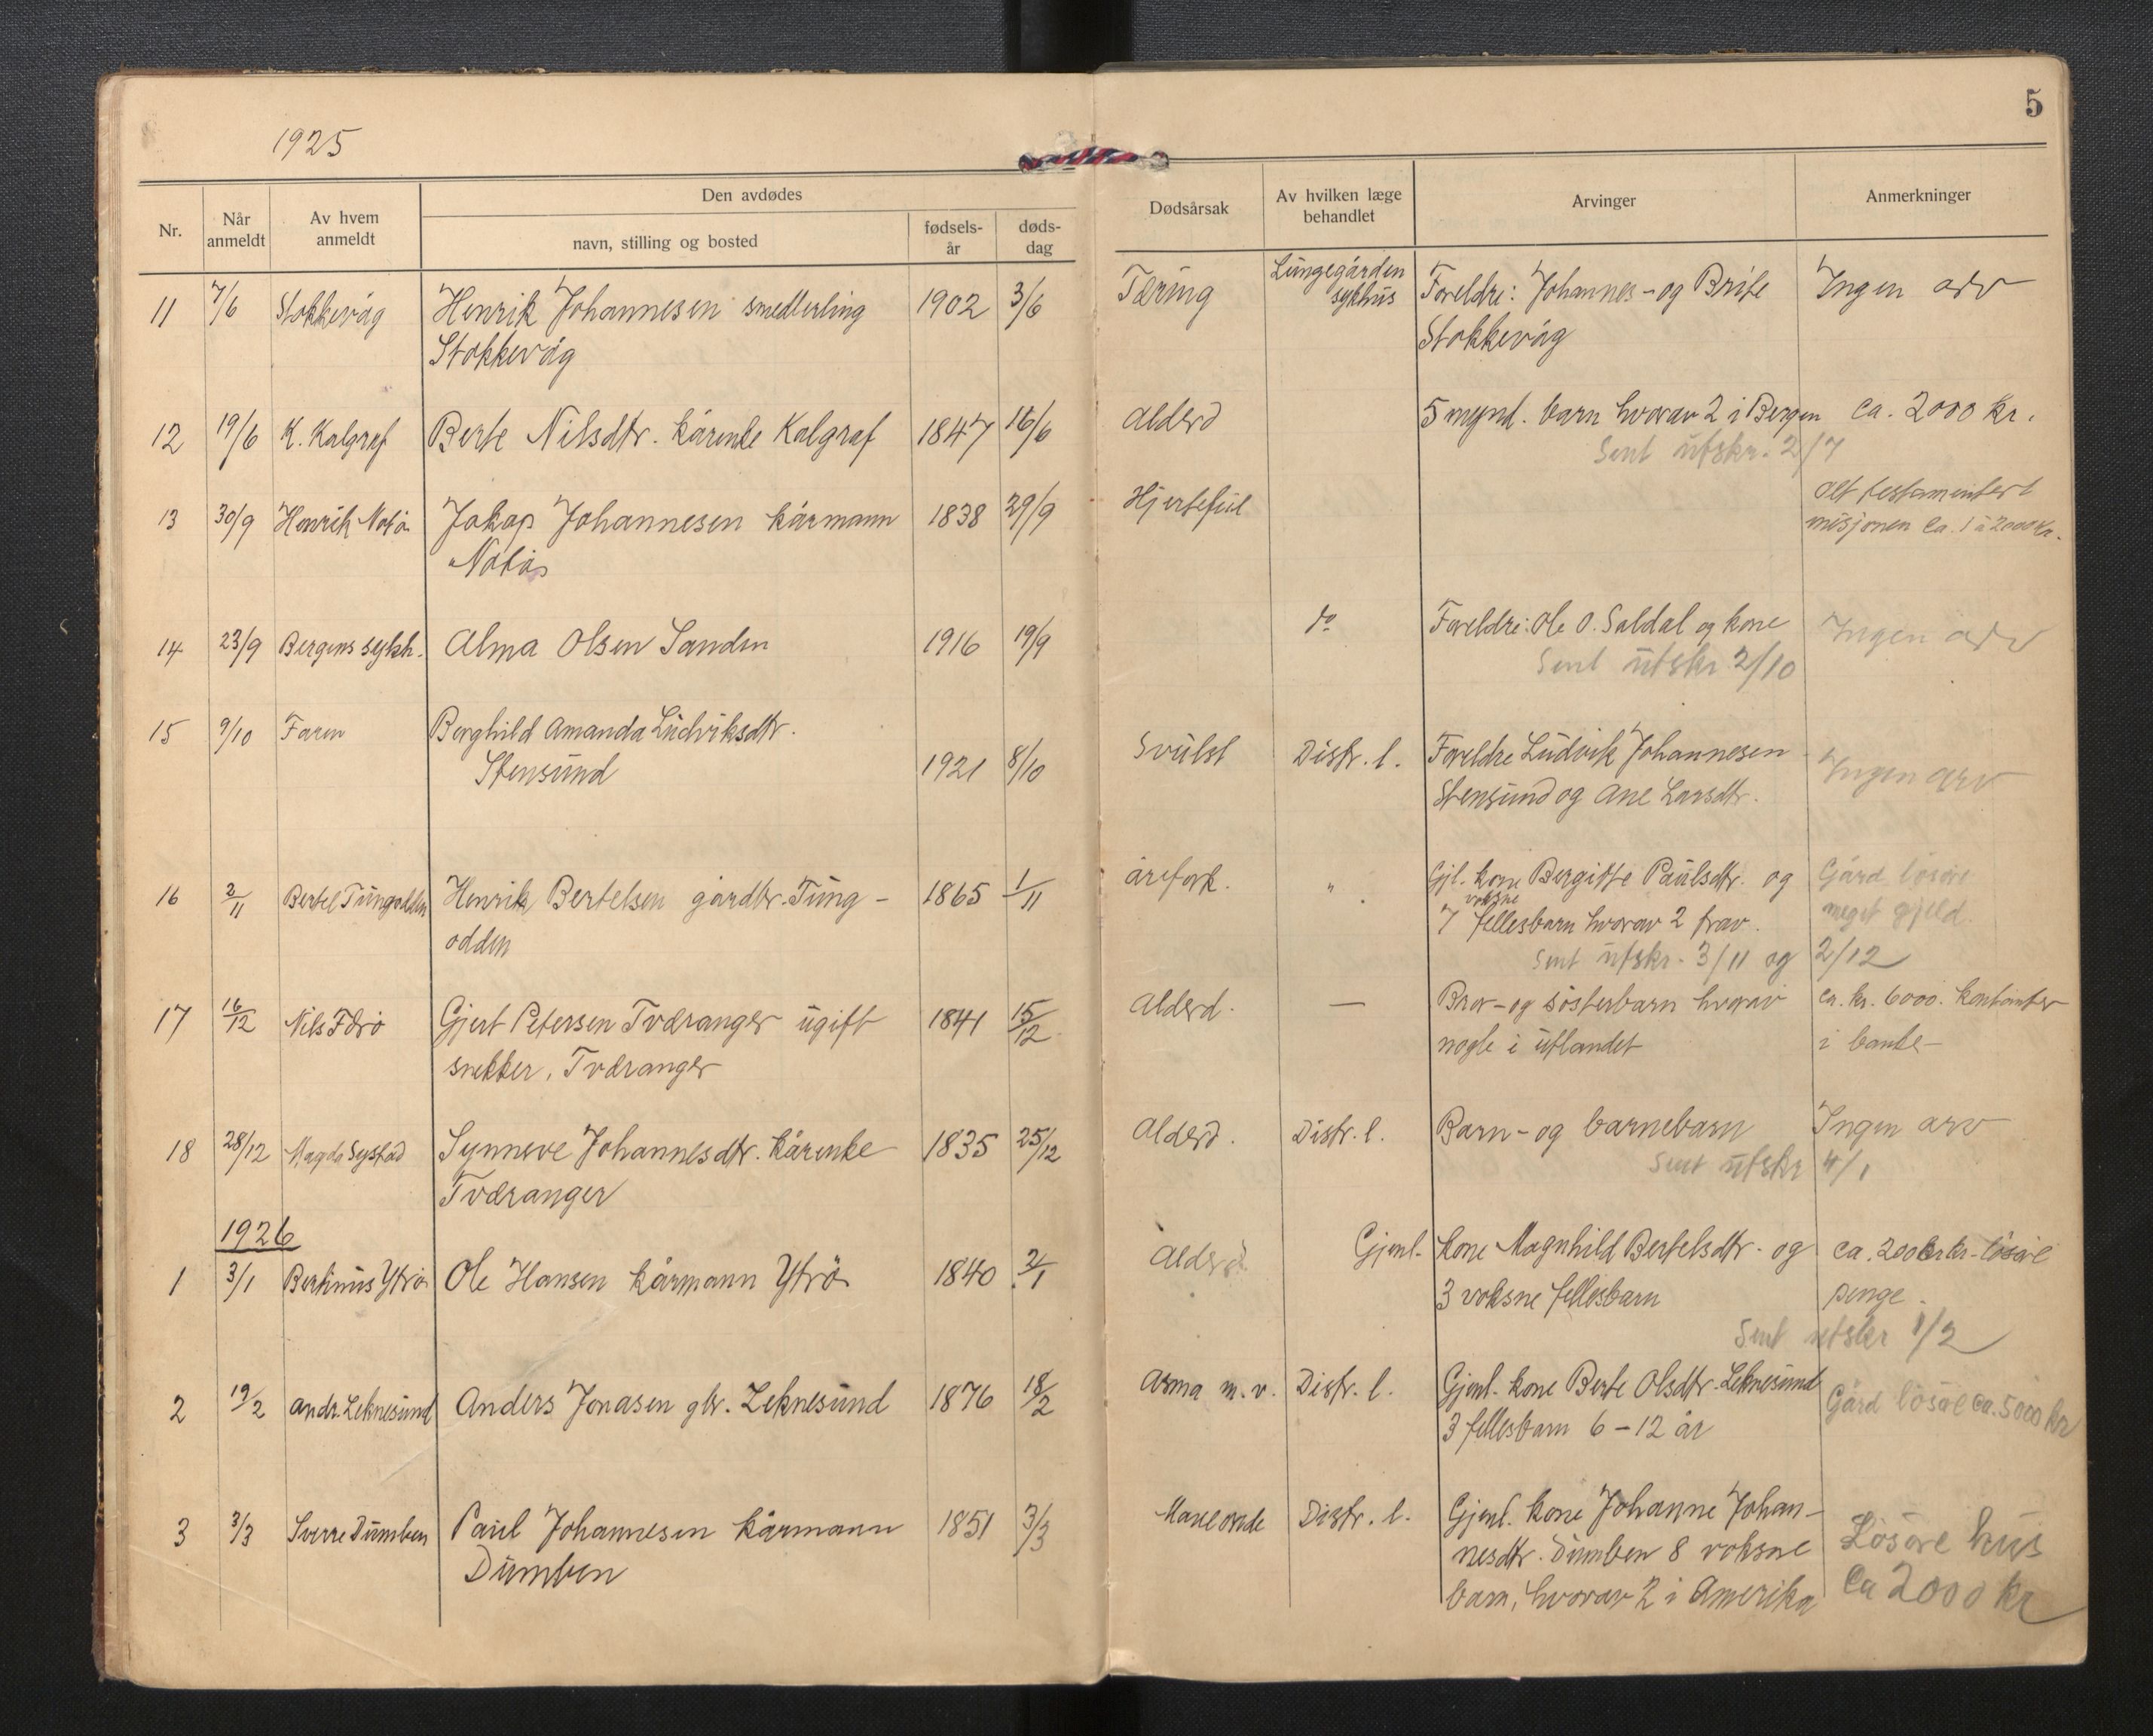 1925
5
Nr.
Når anmeldt
Av hvem anmeldt
Den avdødes
navn, stilling og bosted
fødsels-år
døds-dag
Dødsårsak
Av hvilken læge behandlet
Arvinger
Anmerkninger
11 7/6 Stokkevåg Henrik Johannesen smedlerling 1902 3/6 Tæring Lungegården sykhus Foreldre: Johannes - og Brite Ingen arv
Stokkevåg Stokkevåg
12 19/6 K. Kalgraf Berte Nilsdtr. kårenke Kalgraf 1847 16/6 Alderd 5 mynd. barn hvorav 2 i Bergen ca. 2000 kr.
Sent utskr. 2/7
13 30/9 Henrik Notø Jakop Johannesen kårmann 1838 29/9 Hjertefeil alt testamentert
Notø misjonen ca. 1 à 2000 kr.
14 23/9 Bergens sykh. Alma Olsen Sanden 1916 19/9 do Foreldre: Ole O. Saldal og kone Ingen arv
Sent utskr 2/10
15 9/10 Faren Borghild Amanda Ludviksdtr.
Stensund 1921 8/10 Svulst Distr. l. Foreldre Ludvik Johannesen Ingen arv
Stensund og Ane Larsdtr.
16 2/11 Bertel Tungodden Henrik Bertelsen gårdbr. Tung- 1865 1/11 årefork. " Gjl. kone Bergitte Paulsdtr. og Gård løsøre
odden 7 voksne fellesbarn hvorav 2 frav. meget gjeld.
Sent utskr. 3/11 og 2/12
17 16/12 Nils Færø Gjert Petersen Tværanger ugift 1841 15/12 Alderd. — Bror - og søsterbarn hvorav ca. kr. 6000. kontanter
snekker, Tværanger nogle i utlandet i bank -
18 28/12 Magda Systad Synneve Johannesdtr. kårenke 1835 25/12 Alderd. Distr. l. Barn - og barnebarn Ingen arv
Tværanger Sent utskr 4/1
1926
1 3/1 Bertinus Ytrø Ole Hansen kårmann Ytrø 1840 2/1 Alderd Gjenl. kone Magnhild Bertelsdtr. og ca. 2000 kr - løsøre
3 voksne fellesbarn penge.
Sent utskr 1/2
2 19/2 Andr. Leknesund Anders Jonasen gbr. Leknesund 1876 18/2 Asma m.v. Distr. l. Gjenl. kone Berte Olsdtr. Leknesund Gård løsøre ca. 5000 kr
3 fellesbarn 6 - 12 år
3 3/3 Sverre Dumben Paul Johannesen kårmann 1851 3/3 Maveonde Distr. l. Gjenl. kone Johanne Johan- Løsøre hus
Dumben nesdtr. Dumben 8 voksne ca 2000 kr
barn, hvorav 2 i Amerika